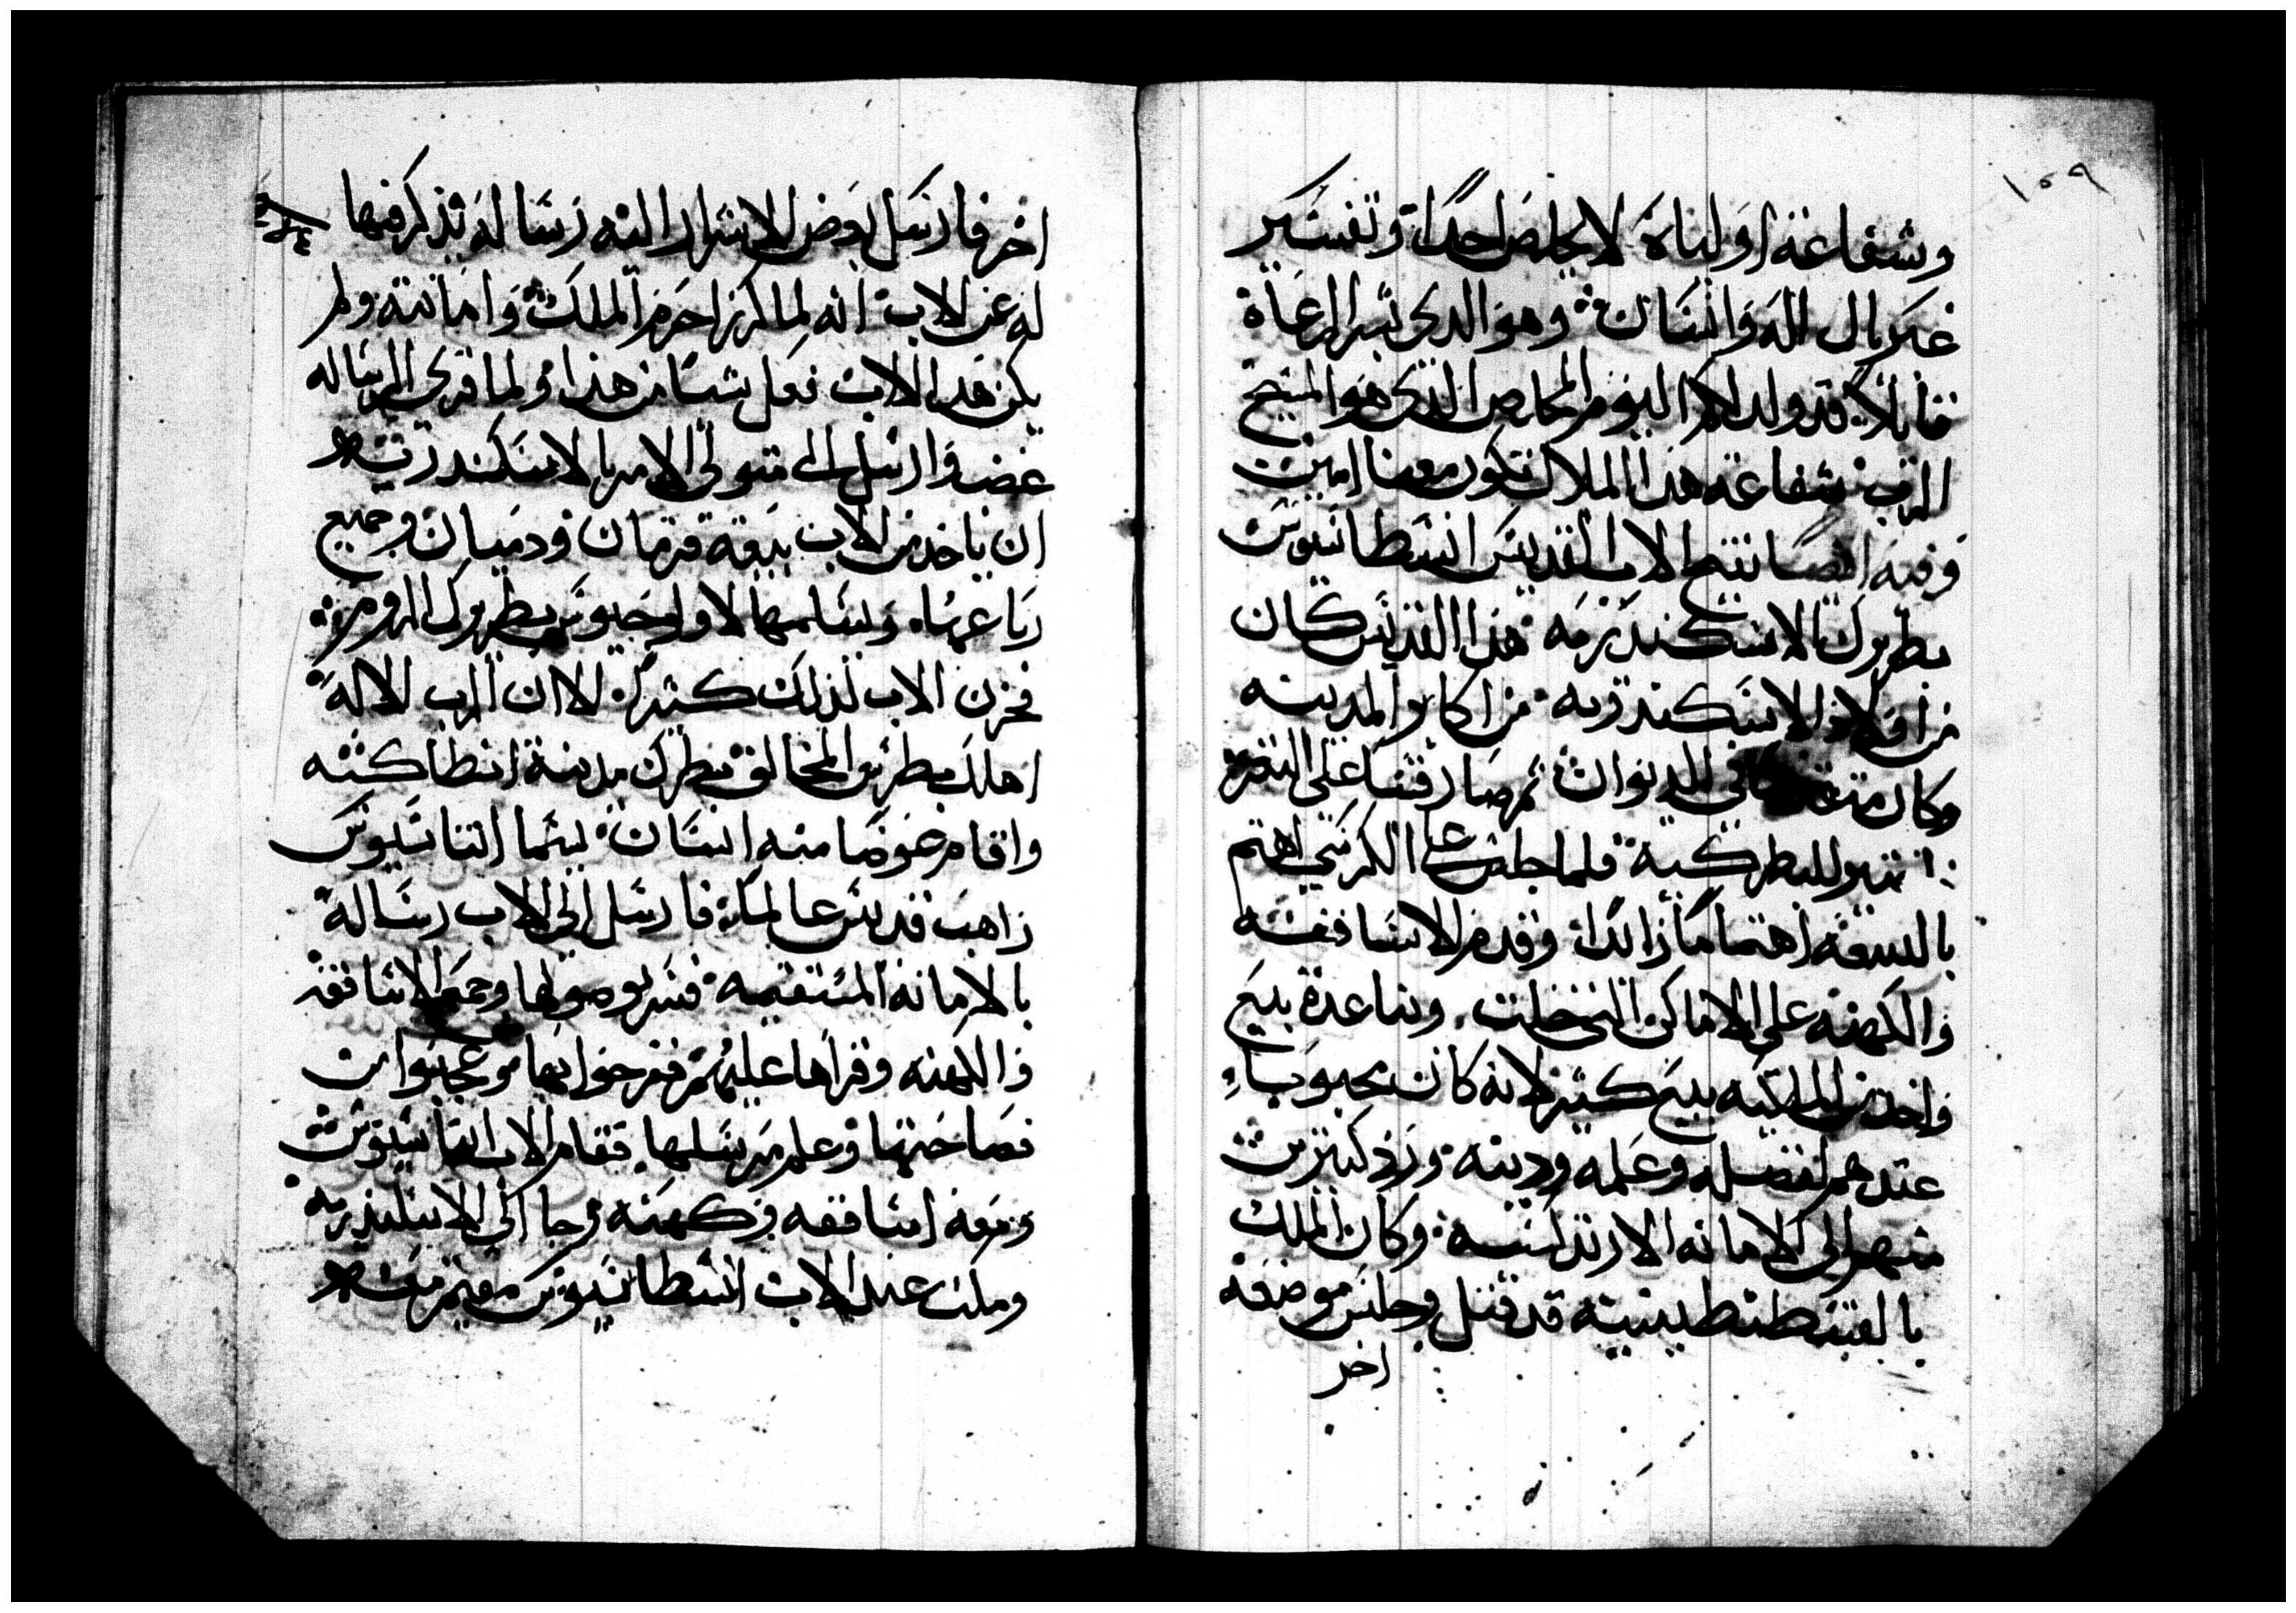 ١٥٩
وشفاعة اوليااة لا يخلص احدا وتفسير
غبريال اله وانسان وهو الدي بشر الرعاة
قايلا قد ولد لكم اليوم المخلص الذي هو المسيح
الرب شفاعة هدا الملاك تكون معنا امين
وفيه ايضا تنيح الاب القديس انسطاسيوس
بطريرك الاسكندريه هدا القديس كان
من اولاد الاسكندريه من اكابر المدينه
وكان في الديوان ثم صار قسا على
للبطركية فلما جلس على الكرسي اهتم
بالبيعه اهتماما زايدا وقدم الاساقفه
والكهنه على الاماكن التي خلت وساعدة بيع
واخد من الملكيه بيع كثير لانه كان محبوبا
عندهم لفضله وعلمه ودينه ورد كثير من
منهم الى الامانه الارتدكسيه وكان الملك
بالقسطنطينيه قد قتل وجلس موضعه
اخر
اخر فارسل بعض الاشرار اليه رساله يذكر فيها
له عن الاب انه لما كرز احرم الملك وامانته ولم
يكن هدا الاب فعل شيا من هذا ولما قري الرساله
غضب وارسل الى متولي الامر بالاسكندريه
ان ياخد من الاب بيعة قزمان ودميان وجميع
رباعها ويسلمها لاولوجيوس بطريرك الروم
فحزن الاب لذلك كثيرا الا ان الرب الاله
اهلك بطرس المخالف بطرك مدينة انطاكيه
واقام عوضا منه انسان يسما اتناسيوس
راهب قديس عالما فارسل الى الاب رسالة
بالامانة المستقيمه فسر بوصولها وجمع الاساقفه
والكهنه وقراها عليهم ففرحوا بها وعجبوا من
فصاحتها وعلم مرسلها فقام الاب اتناسيوس
ومعه اساقفه وكهنه وجا الى الاسكندريه
ومكث عند الاب انسطاسيوس مقيم معه